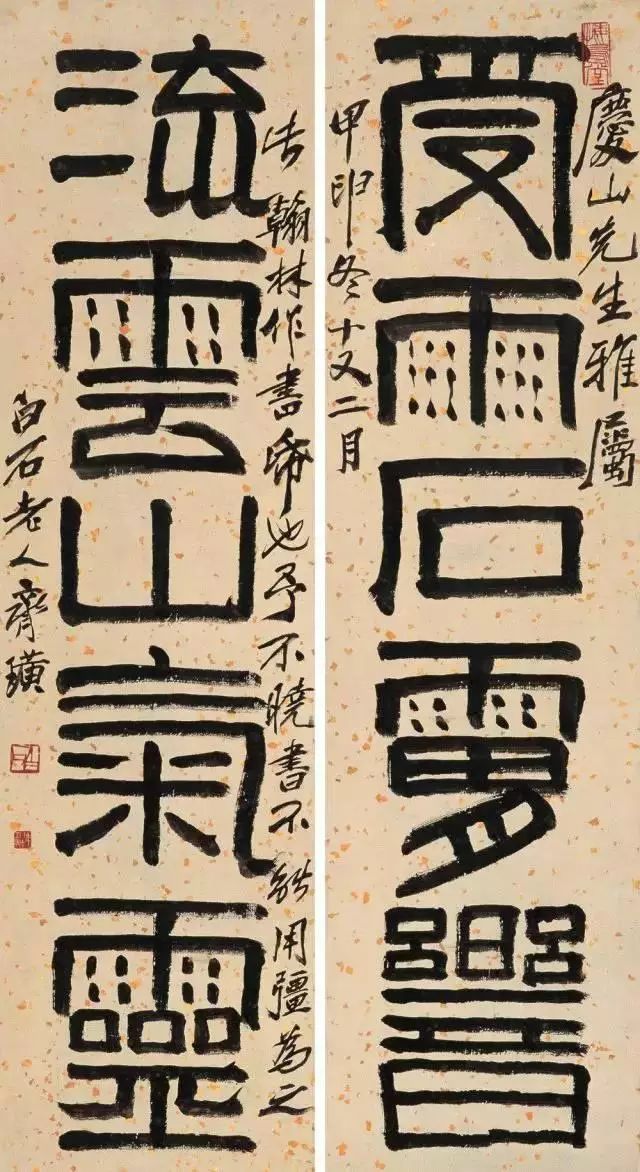 慶山先生雅屬
受雨石響
甲申冬十又二月
流雲山氣靈
翰林作書帋也予不曉書不能用彊為之
白石老人齊璜